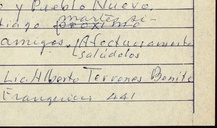 y Pueblo Nuevo,
martes si-
amigos. Afectuosamente
salúdolos
Lic. Alberto Terrones Benite
Franqueces 441